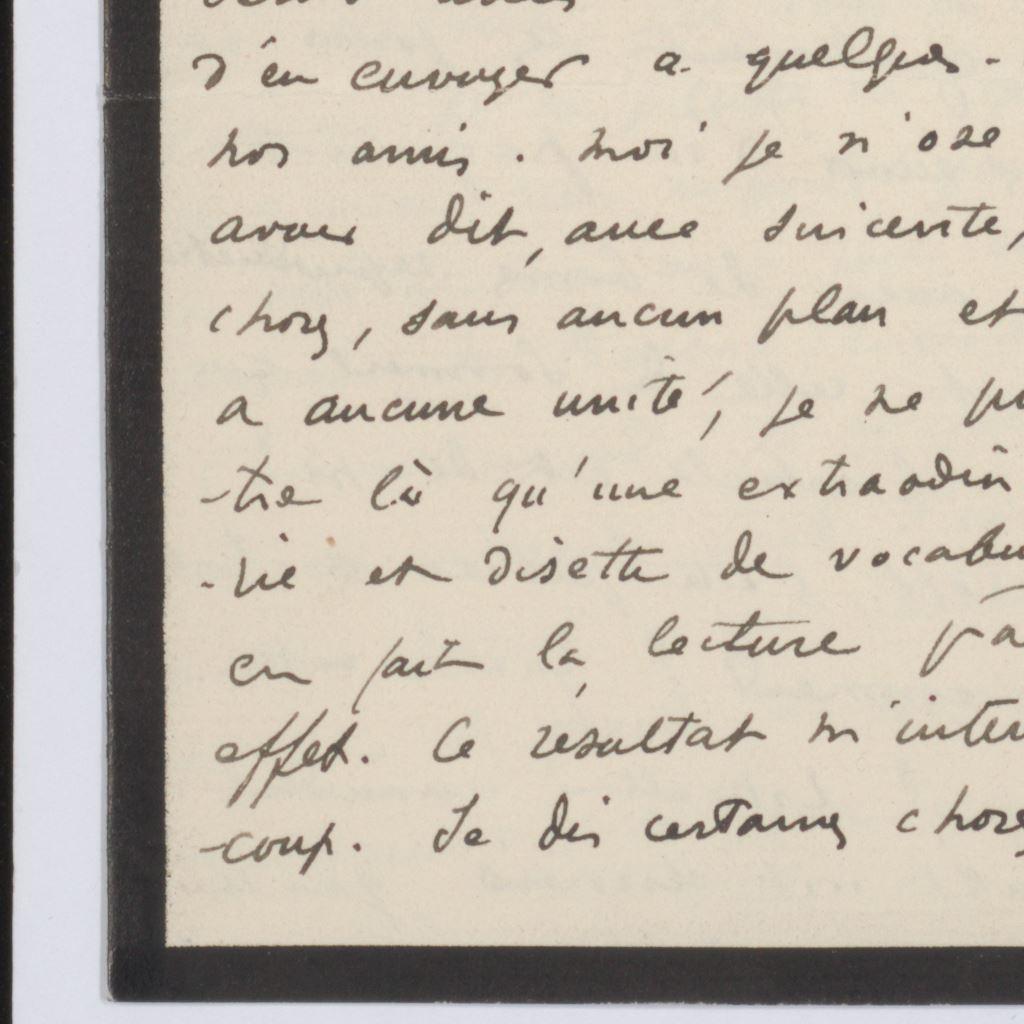 d'en envoyer a quelques-
nos amis. Moi je n'ose
avoir dit, avec sincérité,
choses, sans aucun plan et
a aucune unité, je ne
-tre là qu'une extraodin
-rie et disette de vocabu
en fait la lecture pa
effet. Ce résultat m'inter
-coup. Je dis certaines choses